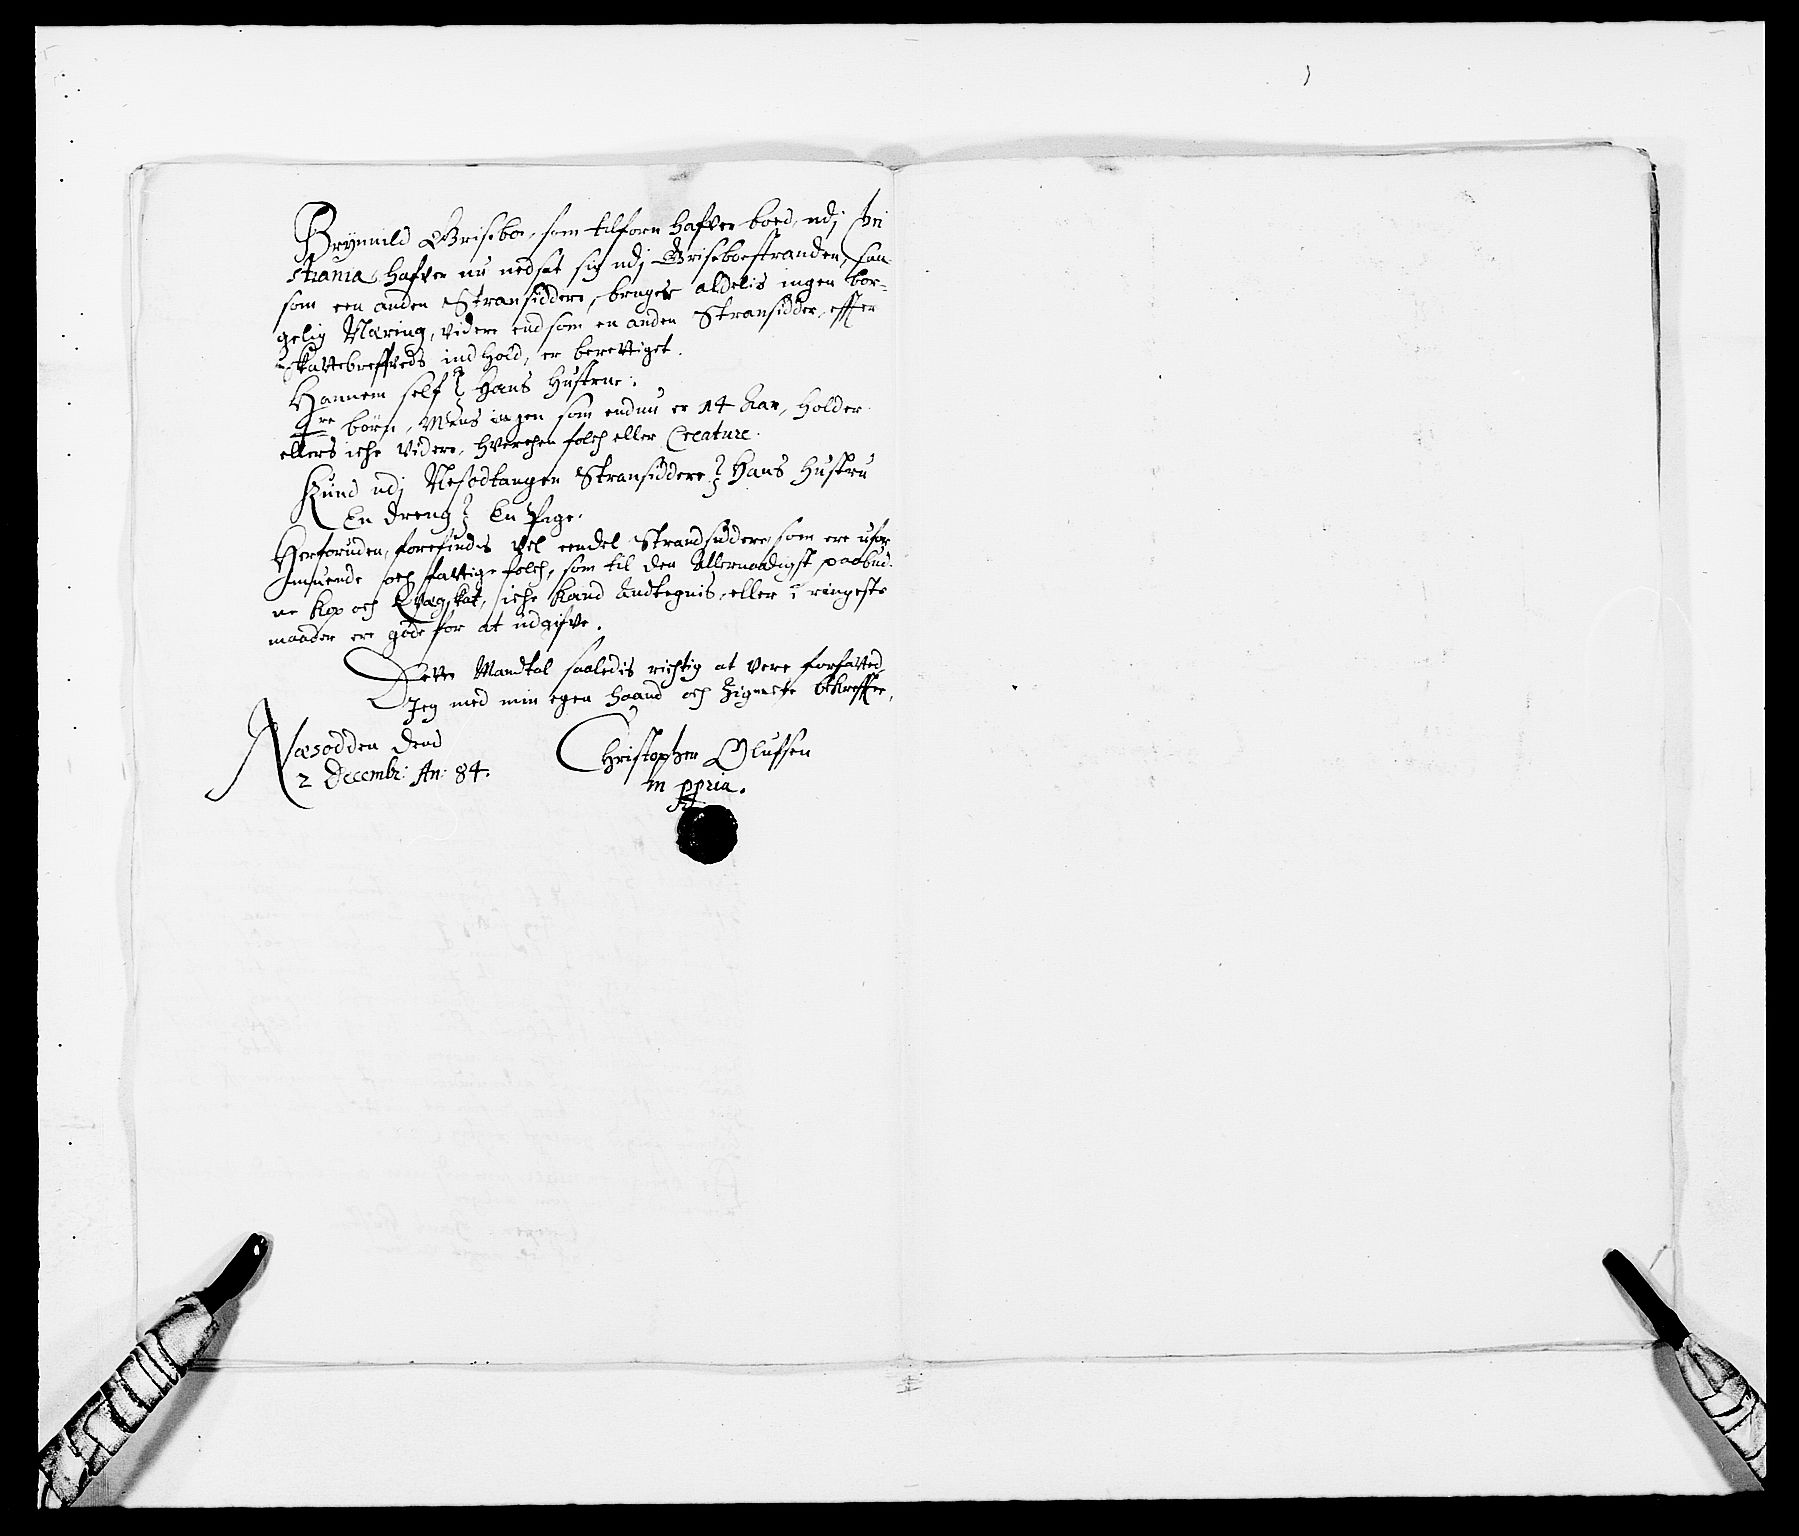 Brynnild Griseboe, som tilforn hafver boed, udj Chri
stiania, hafver nu nedsat sig udj Griseboestranden, saa
som een anden Stransiddere, bruger aldelis ingen bor-
gelig Næring, videre end som en anden Stransidder, effter
Skattebreffveds ind hold, er berettiget.
Hannem self Hans Hustrue.
4re börn, Mens ingen som endnu er 14 Aar, Holder
ellers iche videre, hverchen folch eller Creature.
Gund udj Nesodtangen Stransiddere Hans Hustru
En dreng En Pige.
Herforuden, forefindis vel eendel Strandsiddere, som ere ufor
muende och fattige folch, som til den Allernaadigst paabud-
ne Kop och Qvæg skat, iche kand Andtegnis, eller i ringeste
maader ere gode for at udgifve.
Dette Mandtal saaledis richtig at vere forfatted,
Jeg med min egen haand och Zignette bekreffter,
Næsodden Dend
2 Decembr: An: 84.
Christopher Olufsen
m ppria.